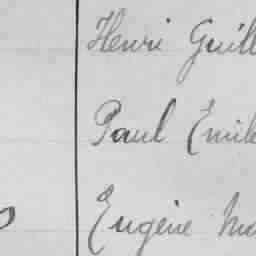 Henri Guill
Paul Emil
Eugène